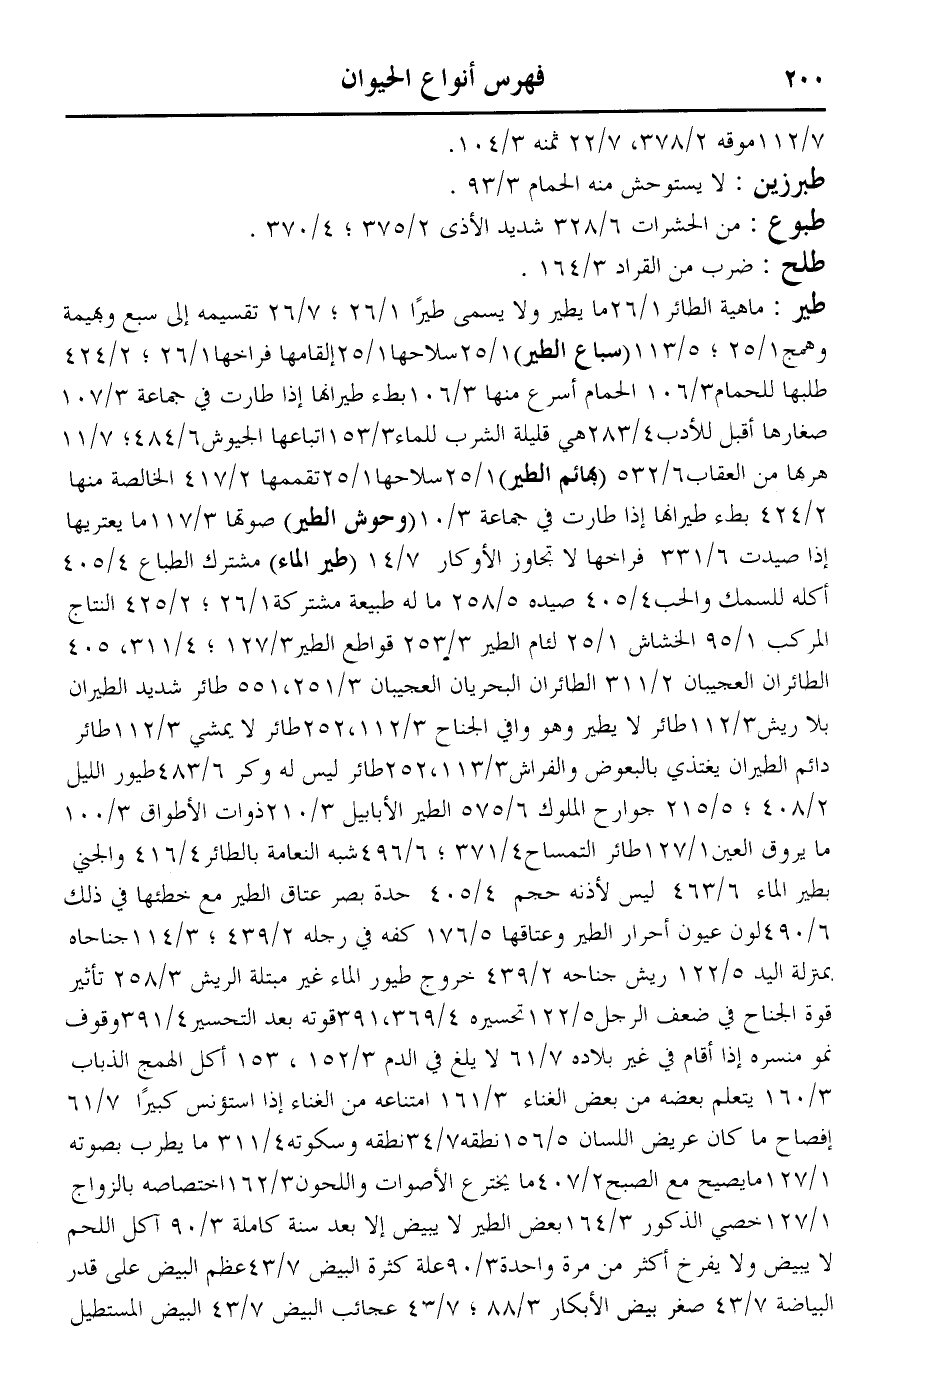 ٢٠٠ فهرس أنواع الحيوان
١١٢/٧موقه ٣٧٨/٢، ٢٢/٧ ثمنه ١٠٤/٣.
طبرزين : لا يستوحش منه الحمام ٩٣/٣ .
طبوع : من الحشرات ٣٢٨/٦ شديد الأذى ٣٧٥/٢ ؛ ٣٧٠/٤ .
طلح : ضرب من القراد ١٦٤/٣ .
طير : ماهية الطائر ٢٦/١ما يطير ولا يسمى طيرًا ٢٦/١ ؛ ٢٦/٧ تقسيمه إلى سبع وبهيمة
وهمج٢٥/١ ؛ ١١٣/٥(سباع الطير)٢٥/١سلاحها٢٥/١إلقامها فراخها٢٦/١ ؛ ٤٢٤/٢
طلبها للحمام١٠٦/٣ الحمام أسرع منها ١٠٦/٣بطء طيرانها إذا طارت في جماعة ١٠٧/٣
صغارها أقبل للأدب٢٨٣/٤هي قليلة الشرب للماء١٥٣/٣اتباعها الجيوش٤٨٤/٦؛ ١١/٧
هربها من العقاب٥٣٢/٦ (بهائم الطير)٢٥/١سلاحها٢٥/١تقممها ٤١٧/٢ الخالصة منها
٤٢٤/٢ بطء طيرانها إذا طارت في جماعة ١٠/٣(وحوش الطير) صوتها ١١٧/٣ما يعتريها
إذا صيدت ٣٣١/٦ فراخها لا تجاوز الأوكار ١٤/٧ (طير الماء) مشترك الطباع ٤٠٥/٤
أكله للسمك والحب٤٠٥/٤ صيده ٢٥٨/٥ ما له طبيعة مشتركة٢٦/١ ؛ ٤٢٥/٢ النتاج
المركب ٩٥/١ الخشاش ٢٥/١ لئام الطير ٢٥٣/٣ قواطع الطير١٢٧/٣ ؛ ٣١١/٤، ٤٠٥
الطائران العجيبان ٣١١/٢ الطائران البحريان العجيبان ٢٥١/٣،٥٥١ طائر شديد الطيران
بلا ريش١١٢/٣طائر لا يطير وهو وافي الجناح ١١٢/٣،٢٥٢طائر لا يمشي ١١٢/٣طائر
دائم الطيران يغتذي بالبعوض والفراش١١٣/٣،٢٥٢طائر ليس له وكر ٤٨٣/٦طيور الليل
٤٠٨/٢ ؛ ٢١٥/٥ جوارح الملوك ٥٧٥/٦ الطير الأبابيل ٢١٠/٣ذوات الأطواق ١٠٠/٣
ما يروق العين١٢٧/١طائر التمساح٣٧١/٤ ؛ ٤٩٦/٦شبه النعامة بالطائر٤١٦/٤ والجني
بطير الماء ٤٦٣/٦ ليس لأذنه حجم ٤٠٥/٤ حدة بصر عتاق الطير مع خطئها في ذلك
٤٩٠/٦لون عيون أحرار الطير وعتاقها ١٧٦/٥ كفه في رجله ٤٣٩/٢ ؛ ١١٤/٣جناحاه
بمنزلة اليد ١٢٢/٥ ريش جناحه ٤٣٩/٢ خروج طيور الماء غير مبتلة الريش ٢٥٨/٣ تأثير
قوة الجناح في ضعف الرجل١٢٢/٥تحسيره ٣٦٩/٤،٣٩١قوته بعد التحسير٣٩١/٤وقوف
نمو منسره إذا أقام في غير بلاده ٦١/٧ لا يلغ في الدم ١٥٢/٣ ، ١٥٣ أكل الهمج الذباب
١٦٠/٣ يتعلم بعضه من بعض الغناء ١٦١/٣ امتناعه من الغناء إذا استؤنس كبيرًا ٦١/٧
إفصاح ما كان عريض اللسان ١٥٦/٥نطقه٣٤/٧نطقه وسكوته٣١١/٤ ما يطرب بصوته
١٢٧/١مايصيح مع الصبح٤٠٧/٢ما يخترع الأصوات واللحون١٦٢/٣اختصاصه بالزواج
١٢٧/١خصي الذكور ١٦٤/٣بعض الطير لا يبيض إلا بعد سنة كاملة ٩٠/٣ آكل اللحم
لا يبيض ولا يفرخ أكثر من مرة واحدة٩٠/٣علة كثرة البيض ٤٣/٧عظم البيض على قدر
البياضة ٤٣/٧ صغر بيض الأبكار ٨٨/٣ ؛ ٤٣/٧ عجائب البيض ٤٣/٧ البيض المستطيل